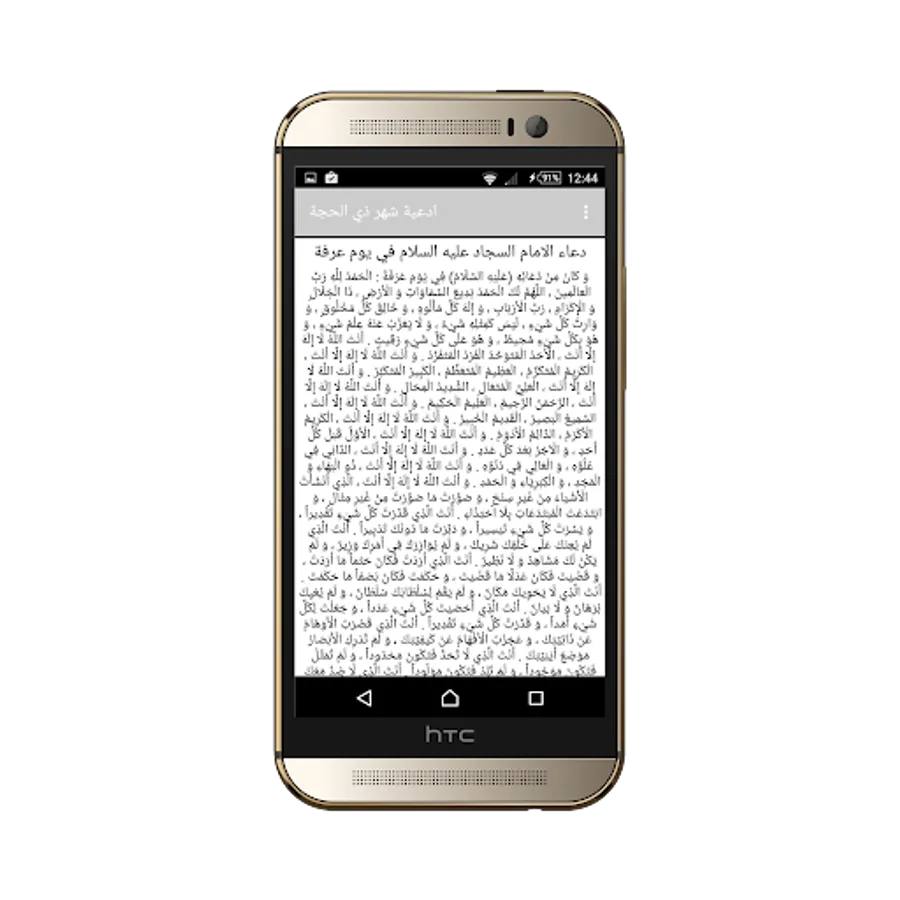 91% 12:44
ادعية شهر ذي الحجة
دعاء الامام السجاد عليه السلام في يوم عرفة
وَ كَانَ مِنْ دُعَائِهِ (عَلَيْهِ السَّلَامُ) فِي يَوْمِ عَرَفَةَ : الْحَمْدُ لِلَّهِ رَبِّ
الْعَالَمِينَ . اللَّهُمَّ لَكَ الْحَمْدُ بَدِيعَ السَّمَاوَاتِ وَ الْأَرْضِ ، ذَا الْجَلَالِ
وَ الْإِكْرَامِ ، رَبَّ الْأَرْبَابِ ، وَ إِلَهَ كُلِّ مَأْلُوهٍ ، وَ خَالِقَ كُلِّ مَخْلُوقٍ ، وَ
وَارِثَ كُلِّ شَيْءٍ ، لَيْسَ كَمِثْلِهِ شَيْءٌ ، وَ لَا يَعْزُبُ عَنْهُ عِلْمُ شَيْءٍ ، وَ
هُوَ بِكُلِّ شَيْءٍ مُحِيطٌ ، وَ هُوَ عَلَى كُلِّ شَيْءٍ رَقِيبٌ . أَنْتَ اللَّهُ لَا إِلَهَ
إِلَّا أَنْتَ ، الْأَحَدُ الْمُتَوَحِّدُ الْفَرْدُ الْمُتَفَرِّدُ . وَ أَنْتَ اللَّهُ لَا إِلَهَ إِلَّا أَنْتَ ،
الْكَرِيمُ الْمُتَكَرِّمُ ، الْعَظِيمُ الْمُتَعَظِّمُ ، الْكَبِيرُ الْمُتَكَبِّرُ . وَ أَنْتَ اللَّهُ لَا
إِلَهَ إِلَّا أَنْتَ ، الْعَلِيُّ الْمُتَعَالِ ، الشَّدِيدُ الْمِحَالِ . وَ أَنْتَ اللَّهُ لَا إِلَهَ إِلَّا
أَنْتَ ، الرَّحْمَنُ الرَّحِيمُ ، الْعَلِيمُ الْحَكِيمُ . وَ أَنْتَ اللَّهُ لَا إِلَهَ إِلَّا أَنْتَ ،
السَّمِيعُ الْبَصِيرُ ، الْقَدِيمُ الْخَبِيرُ . وَ أَنْتَ اللَّهُ لَا إِلَهَ إِلَّا أَنْتَ ، الْكَرِيمُ
الْأَكْرَمُ ، الدَّائِمُ الْأَدْوَمُ . وَ أَنْتَ اللَّهُ لَا إِلَهَ إِلَّا أَنْتَ ، الْأَوَّلُ قَبْلَ كُلِّ
أَحَدٍ ، وَ الْآخِرُ بَعْدَ كُلِّ عَدَدٍ . وَ أَنْتَ اللَّهُ لَا إِلَهَ إِلَّا أَنْتَ ، الدَّانِي فِي
عُلُوِّهِ ، وَ الْعَالِي فِي دُنُوِّهِ . وَ أَنْتَ اللَّهُ لَا إِلَهَ إِلَّا أَنْتَ ، ذُو الْبَهَاءِ وَ
الْمَجْدِ ، وَ الْكِبْرِيَاءِ وَ الْحَمْدِ . وَ أَنْتَ اللَّهُ لَا إِلَهَ إِلَّا أَنْتَ ، الَّذِي أَنْشَأْتَ
الْأَشْيَاءَ مِنْ غَيْرِ سِنْخٍ ، وَ صَوَّرْتَ مَا صَوَّرْتَ مِنْ غَيْرِ مِثَالٍ ، وَ
ابْتَدَعْتَ الْمُبْتَدَعَاتِ بِلَا احْتِذَاءٍ . أَنْتَ الَّذِي قَدَّرْتَ كُلَّ شَيْءٍ تَقْدِيراً ،
وَ يَسَّرْتَ كُلَّ شَيْءٍ تَيْسِيراً ، وَ دَبَّرْتَ مَا دُونَكَ تَدْبِيراً . أَنْتَ الَّذِي
لَمْ يُعِنْكَ عَلَى خَلْقِكَ شَرِيكٌ ، وَ لَمْ يُوَازِرْكَ فِي أَمْرِكَ وَزِيرٌ ، وَ لَمْ
يَكُنْ لَكَ مُشَاهِدٌ وَ لَا نَظِيرٌ . أَنْتَ الَّذِي أَرَدْتَ فَكَانَ حَتْماً مَا أَرَدْتَ ،
وَ قَضَيْتَ فَكَانَ عَدْلًا مَا قَضَيْتَ ، وَ حَكَمْتَ فَكَانَ نِصْفاً مَا حَكَمْتَ .
أَنْتَ الَّذِي لَا يَحْوِيكَ مَكَانٌ ، وَ لَمْ يَقُمْ لِسُلْطَانِكَ سُلْطَانٌ ، وَ لَمْ يُعْيِكَ
بُرْهَانٌ وَ لَا بَيَانٌ . أَنْتَ الَّذِي أَحْصَيْتَ كُلَّ شَيْءٍ عَدَداً ، وَ جَعَلْتَ لِكُلِّ
شَيْءٍ أَمَداً ، وَ قَدَّرْتَ كُلَّ شَيْءٍ تَقْدِيراً . أَنْتَ الَّذِي قَصُرَتِ الْأَوْهَامُ
عَنْ ذَاتِيَّتِكَ ، وَ عَجَزَتِ الْأَفْهَامُ عَنْ كَيْفِيَّتِكَ ، وَ لَمْ تُدْرِكِ الْأَبْصَارُ
مَوْضِعَ أَيْنِيَّتِكَ . أَنْتَ الَّذِي لَا تُحَدُّ فَتَكُونَ مَحْدُوداً ، وَ لَمْ تُمَثَّلْ
فَتَكُونَ مَوْجُوداً ، وَ لَمْ تَلِدْ فَتَكُونَ مَوْلُوداً . أَنْتَ الَّذِي لَا ضِدَّ مَعَكَ
hTC